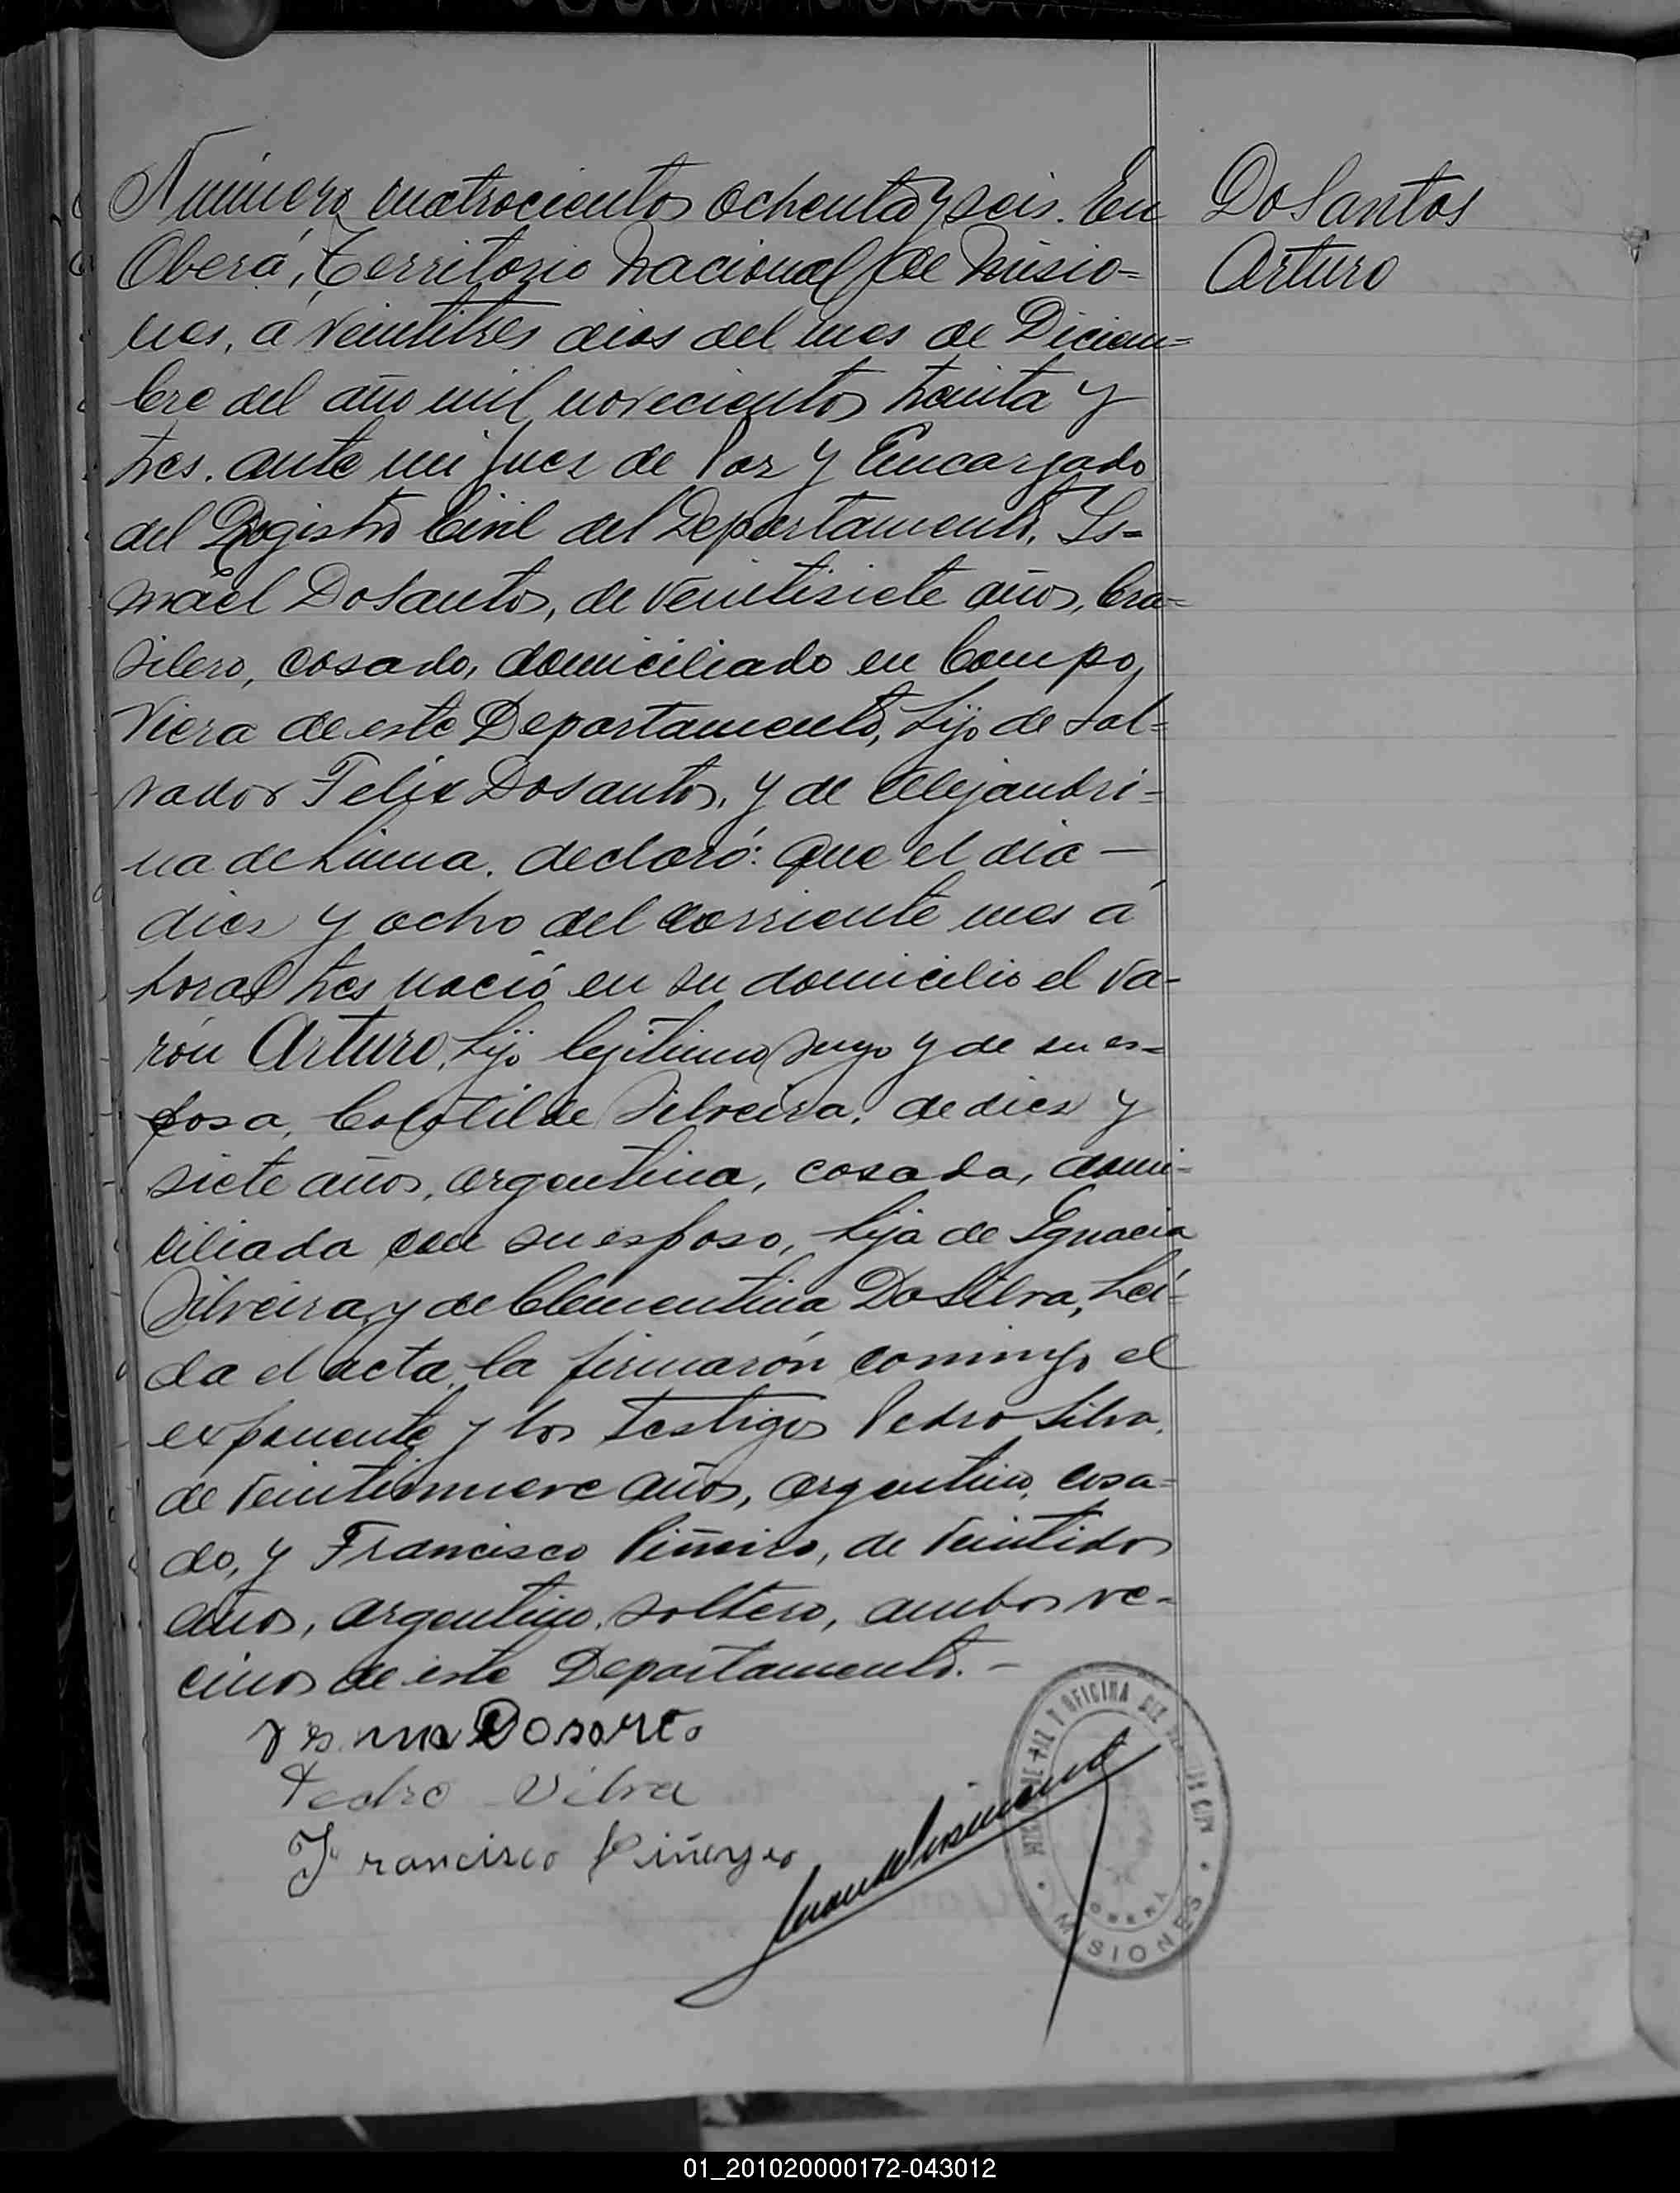 Número cuatrocientos ochenta y seis. En
Oberá, Territorio Nacional de Misio=
nes, a veintitres dias del mes de Diciem=
bre del año mil novecientos treinta y
tres. ante mi Juez de Paz y Encargado
del Registro Civil del Departamento, Is=
máel DoSantos, de veintisiete años, bra=
silero, casado, domiciliado en Campo
Viera de este Departamento, hijo de Sal=
vador Felix DoSantos, y de Alejandri=
na de Lima. declaró: Que el dia —
diez y ocho del corriente mes a
horas tres nació en su domicilio el va-
rón Arturo, hijo legitimo suyo y de su es=
posa, Colotilde Silveira, de diez y
siete años, argentina, casada, domi=
ciliada con su esposo, hija de Ignacia
Silveira, y de Clementina DaSilva, Leí=
da el acta, la firmarón conmigo el
exponente y los testigos Pedro Silva,
de veintinueve años, argentino, casa=
do, y Francisco Piñeiro, de veintidos
años, argentino, soltero, ambos ve=
cinos de este Departamento. —
Dosanto
Pedro Silva
Francisco Piñeyro
DoSantos
Arturo
DE PAZ Y OFICINA DEL
OBERA
MISIONES
01_201020000172-043012